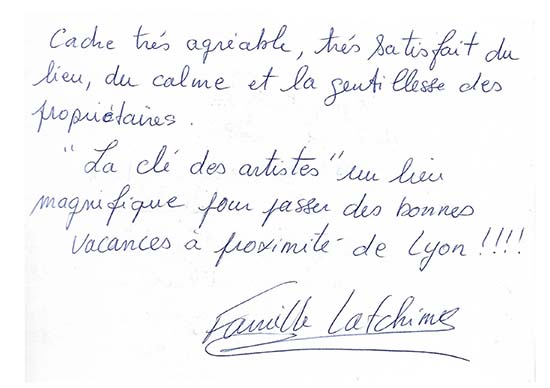 Cadre très agréable, très satisfait du
lieu, du calme et la gentillesse des
propriétaires.
"La clé des artistes" un lieu
magnifique pour passer des bonnes
vacances à proximité de Lyon !!!!
Famille Latchimy